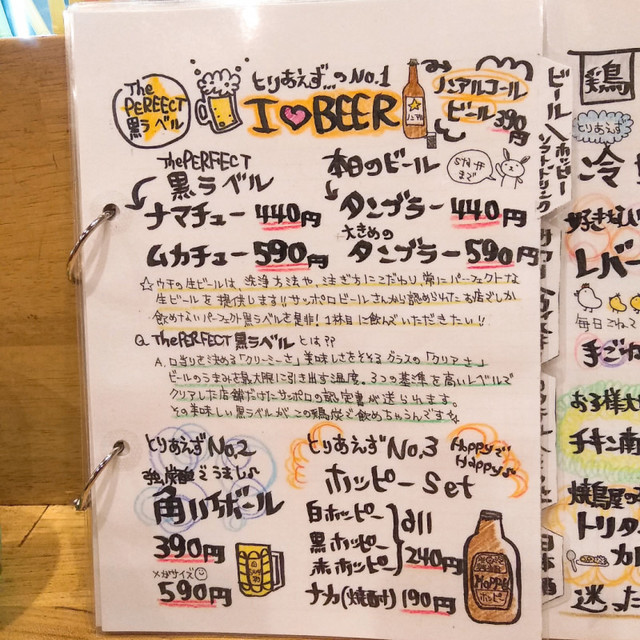 The PERFECT 黒ラベル
とりあえず…のNo.1
I BEER
ノンアルコール
ビール 390円
The PERFECT
黒ラベル
ナマチュー 440円
ムカチュー 590円
本日のビール
スタッフ
まで
タンブラー 440円
大きめの
タンブラー 590円
☆ウチの生ビールは、洗浄方法や、注ぎ方にこだわり、常にパーフェクトな
生ビールを提供します!!サッポロビールさんから認められたお店でしか
飲めないパーフェクト黒ラベルを是非!1杯目に飲んでいただきたい!!
Q. The PERFECT 黒ラベルとは??
A. 口当りを決める「クリーミーさ」美味しさをそそるグラスの「クリアさ」
ビールのうまみを最大限に引き出す温度。3つの基準を高いレベルで
クリアした店舗だけにサッポロの認定書が送られます。
その美味しい黒ラベルがこの鶏炭で飲めちゃうんですよ
とりあえずNo.2
強炭酸でうまし♪
角ハイボール
390円
メガサイズ
590円
とりあえずNo.3
HappyでHappy♪
ホッピーset
白ホッピー
黒ホッピー
赤ホッピー
all
240円
ナカ(焼酎) 190円
HOPPY
ホッピー
ビール
ホッピー
ソフトドリンク
サワー
日本酒
鶏
とりあえず
冷
好きなバ
レバー
毎日こねて
手ごね
お子様大
チキン南
焼鳥屋の
トリタ
カレ
迷った